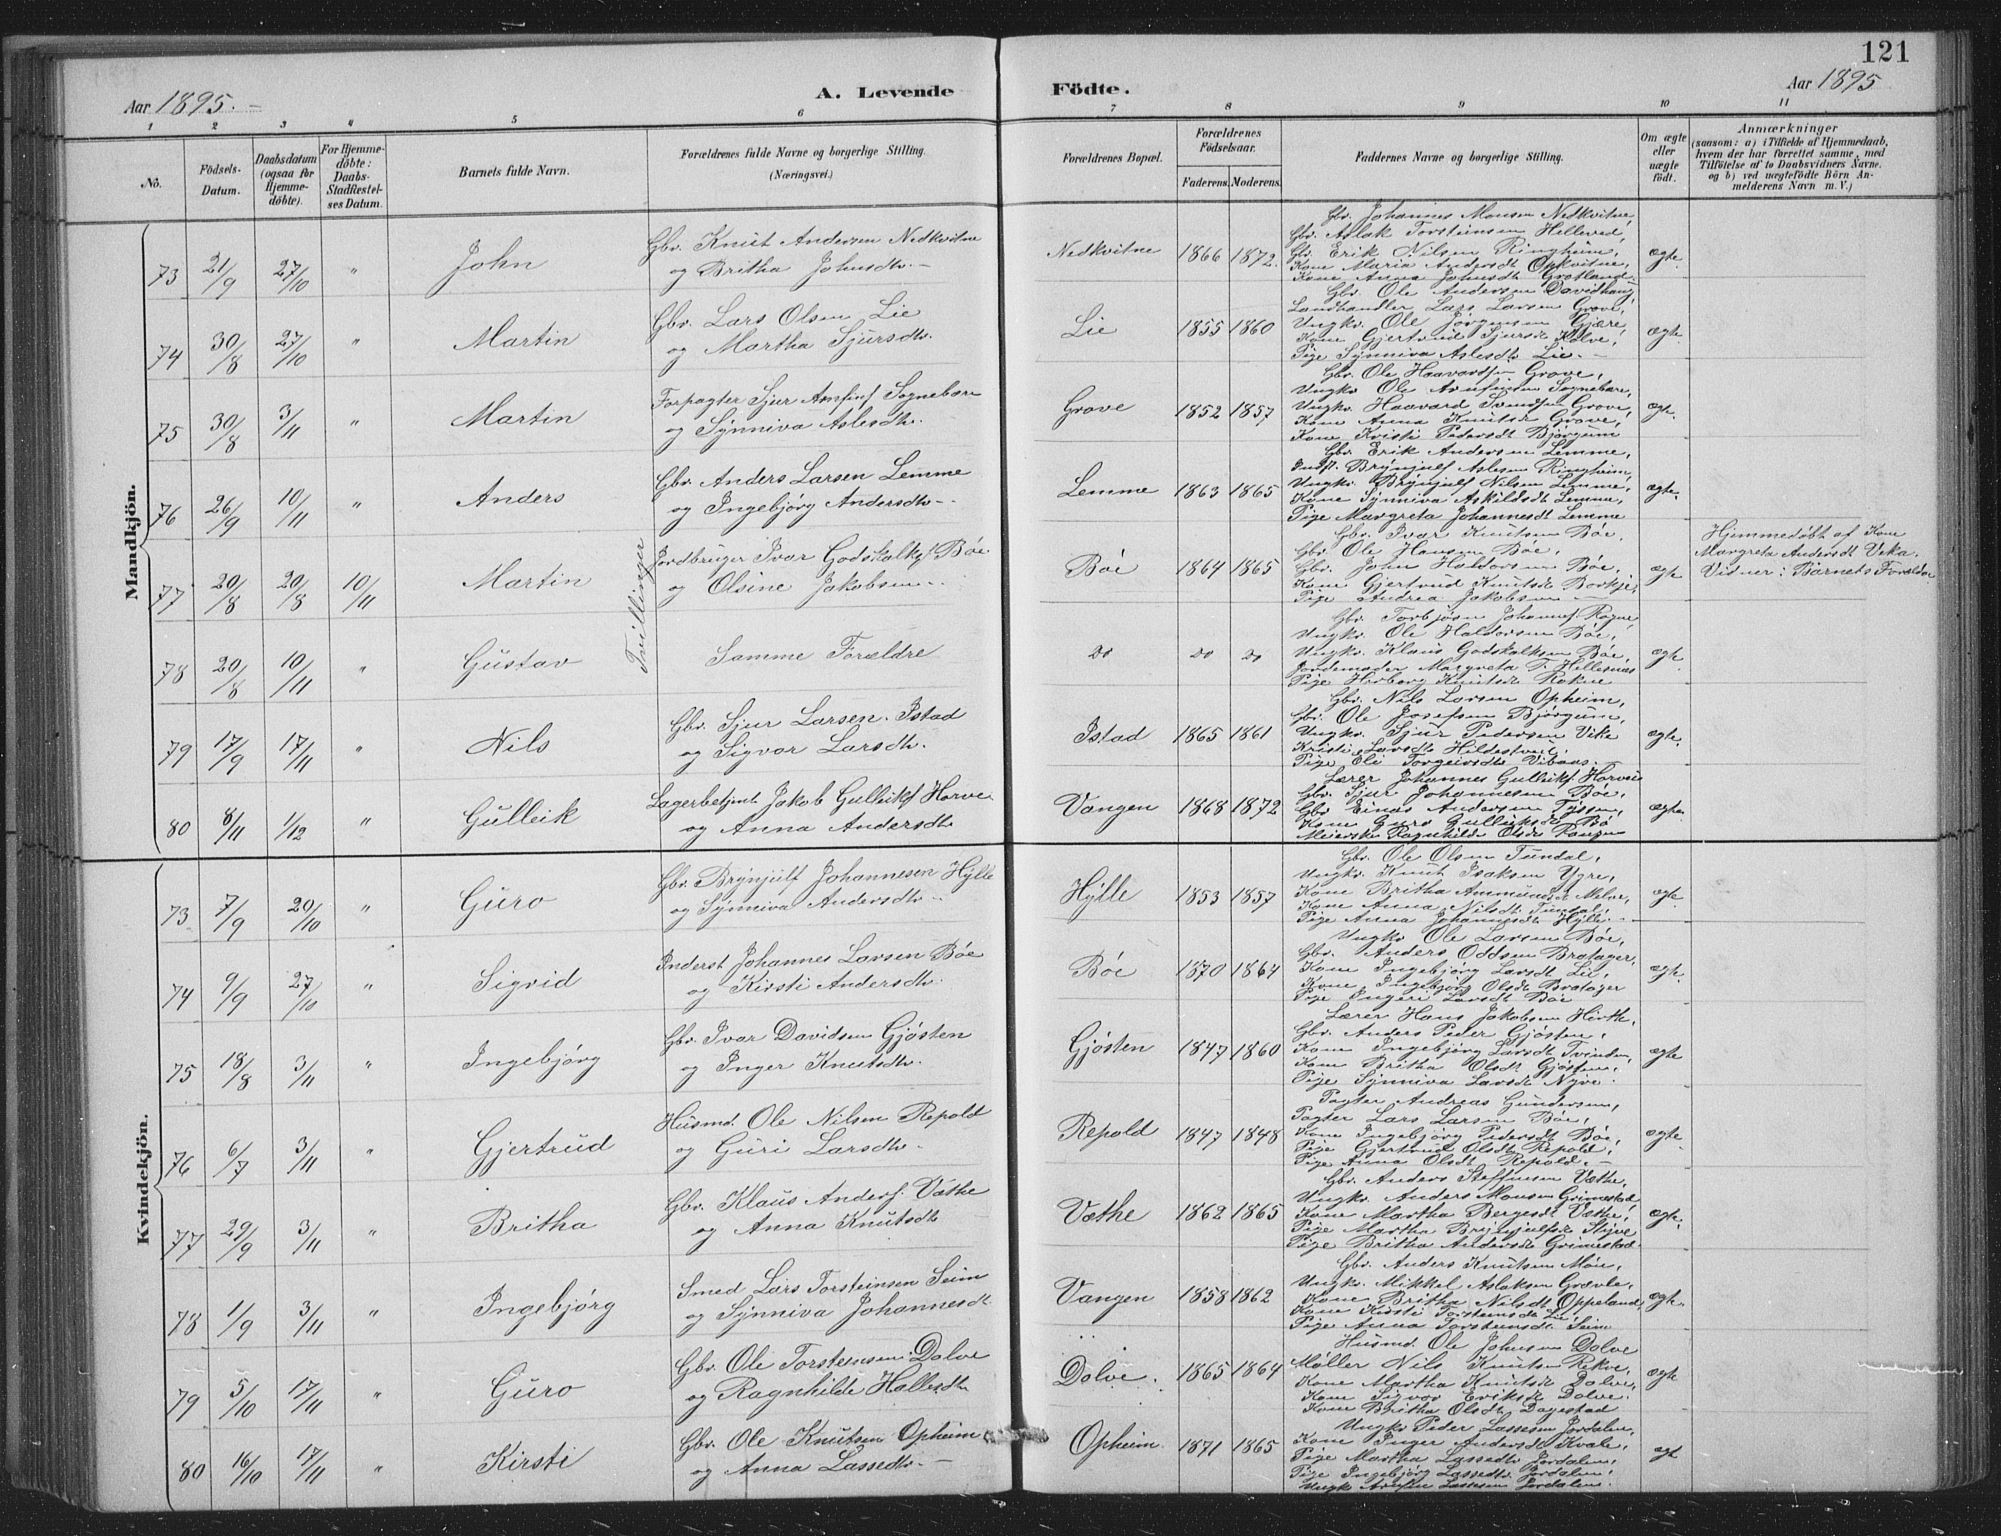 121
Aar 1895.
A. Levende Födte.
Aar 1895
1 2 3 4 5 6 7 8 9 10 11
No.
Födsels-Datum.
Daabsdatum (ogsaa for Hjemme-döbte).
For Hjemme-döbte: Daabs-Stadfæstel-ses Datum.
Barnets fulde Navn.
Forældrenes fulde Navne og borgerlige Stilling. (Næringsvei.)
Forældrenes Bopæl.
Forældrenes Födselsaar.
Faderens. Moderens.
Faddernes Navne og borgerlige Stilling.
Om ægte eller uægte födt.
Anmærkninger
(saasom: a) i Tilfælde af Hjemmedaab,
hvem der har forrettet samme, med
Tilföielse af to Daabsvidners Navne.
og b) ved uægtefödte Börn An-
melderens Navn m. V.)
Mandkjön.
73 21/9 27/10 " John
Gbr. Knut Andersen Nedkvitne
og Britha Johnsdtr.
Nedkvitne 1866 1872
Gbr. Johannes Monsen Nedkvitne,
Gbr. Aslak Torsteinsen Helleved,
Gbr. Erik Nilsen Ringheim,
Kone Maria Andersdt Opkvitne,
Kone Anna Johnsdt Grotland
ægte
74 30/8 27/10 " Martin
Gbr. Lars Olsen Lie
og Martha Sjursdtr.
Lie 1855 1860
Gbr. Ole Andersen Davidhaug,
Landhandler Lars Larsen Grove,
Ungkr. Ole Jörgensen Gjære,
Kone Gjertrud Sjursdt Kolve,
Pige Synniva Aslesdt Lie.
ægte
75 30/8 3/11 " Martin
Forpagter Sjur Arnfinsf Sognebære
og Synniva Aslesdtr.
Grove 1852 1857
Gbr. Ole Haavardsen Grove,
Ungkr. Ole Arnfinsen Sognebære,
Ungkr. Haavard Svendsen Grove,
Kone Anna Knutsdt Grove,
Kone Kristi Pedersdt Björgum
ægte.
76 26/9 10/11 " Anders
Gbr. Anders Larsen Lemme
og Ingebjörg Andersdtr.
Lemme 1863 1865
Gbr. Erik Andersen Lemme,
Indst. Brynjulf Aslesen Ringheim,
Ungkr. Brynjulf Nilsen Lemme,
Kone Synniva Askildsdt Lemme,
Pige Margreta Johannesdt Lemme
ægte.
77 20/8 20/8 10/11 Martin
Tvillinger
Jordbruger Ivar Godskalksf. Böe
og Olsine Jakobsen
Böe 1864 1865
Gbr. Ivar Knutsen Böe,
Gbr. Ole Hansen Böe,
Gbr. John Haldorsen Böe,
Kone Gjertrud Knutsdt Borkje,
Pige Andrea Jakobsen
ægte
Hjemmedöbt af Kone
Margreta Andersdt Veka.
Vidner: Barnets Forældre
78 20/8 10/11 " Gustav
Samme Forældre
do do do
Gbr. Torbjörn Johannesf. Rogne,
Ungkr. Ole Haldorsen Böe,
Ungkr. Klaus Godskalksen Böe,
Jordemoder Margreta T. Hillesnæs
Pige Herborg Knutsdt Rokne
ægte.
79 17/9 17/11 " Nils
Gbr. Sjur Larsen Istad
og Sigvor Larsdtr.
Istad 1865 1861
Gbr. Nils Larsen Opheim,
Gbr. Ole Josefsen Björgum,
Ungkr. Sjur Pedersen Vike
Kristi Larsdt Hildestveit,
Pige Eli Torgeirsdt Vibaas.
ægte.
80 8/11 1/12 " Gulleik
Lagerbetjent Jakob Gulleiksf Horve
og Anna Andersdtr
Vangen 1868 1872
Lærer Johannes Gulleiksf. Horvei
Gbr. Sjur Johannesen Böe,
Gbr. Einar Andersen Tyssen,
Kone Guro Gulleiksdt Bö
Meierske Ragnhilde Olsdt
ægte.
Kvindekjön.
73 7/9 20/10 " Guro
Gbr. Brynjulf Johannesen Hylle
og Synniva Andersdtr.
Hylle 1853 1857
Gbr. Ole Olsen Tundal,
Ungkr. Knut Isaksen Ygre,
Kone Britha Ammundsdt Melve,
Kone Anna Nilsdt Tundal,
Pige Anna Johannesdt Hylle.
ægte
74 9/9 27/10 " Sigrid
Inderst Johannes Larsen Böe
og Kirsti Andersdtr.
Böe 1870 1864
Ungkr. Ole Larsen Böe,
Gbr. Anders Oddsen Bratager,
Kone Ingebjörg Larsdt Lie,
Kone Ingebjörg Olsdt Bratager
Pige Ingeri Larsdt Böe
ægte.
75 18/8 3/11 " Ingebjörg
Gbr. Ivar Davidsen Gjösten
og Inger Knutsdtr.
Gjösten 1847 1860
Lærer Hans Jakobsen Hirth,
Gbr. Anders Peder Gjösten,
Kone Ingebjörg Larsdt Tvinden,
Kone Britha Olsdt Gjösten,
Pige Synniva Larsdt Nyre.
ægte
76 6/7 3/11 " Gjertrud
Husmd. Ole Nilsen Repold
og Guri Larsdtr.
Repold 1847 1848
Pagter Andreas Gundersen,
Pagter Lars Larsen Böe,
Kone Ingebjörg Pedersdt Böe,
Pige Gjertrud Olsdt Repold,
Pige Anna Olsdt Repold.
ægte
77 29/9 3/11 " Britha
Gbr. Klaus Andersf. Væthe
og Anna Knutsdtr
Væthe 1862 1865
Gbr. Anders Steffensen Væthe,
Ungkr. Anders Monsen Grimestad
Kone Martha Bergesdt Væthe,
Pige Martha Brynjulfsdt Styve
Pige Britha Andersdt Grimestad.
ægte.
78 1/9 3/11 " Ingebjörg
Smed Lars Torsteinsen Seim
og Synniva Johannesdt.
Vangen 1858 1862
Gbr. Anders Knutsen Möen,
Ungkr. Mikkel Aslaksen Grævle,
Kone Britha Nilsdt Oppeland,
Kone Kirsti Torsteinsdt Lie
Pige Anna Torsteinsdt Seim
ægte.
79 5/10 17/11 " Guro
Gbr. Ole Torsteinsen Dolve
og Ragnhilde Hallesdtr
Dolve. 1865 1864
Husmd. Ole Johnsen Dolve
Møller Nils Knutsen Rekve,
Kone Martha Knutsdt Dolve,
Kone Sigvor Eriksdt Dolve.
Kone Britha Olsdt Dagestad
ægte
80 16/10 17/11 " Kirsti
Gbr. Ole Knutsen Opheim
og Anna Lassedtr.
Opheim 1871 1865
Ungkr Peder Lassesen Jordalen,
Kone Inger Andersdt Kvale,
Pige Martha Lassedt Jordalen,
Pige Ingebjörg Lassedtr Jordalen,
Ungkr Arnfin Lassesen Jordalen.
ægt